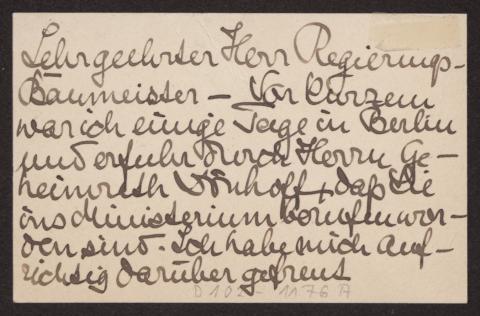 Sehrgeehrter Herr Regierungs-
Baumeister – Vor kurzem
war ich einige Tage in Berlin
und erfuhr durch Herrn Ge-
heimrath Dönhoff, daß Sie
ins Ministerium berufen wor-
den sind. Ich habe mich auf-
richtig darüber gefreut
D 102 - 1176 A